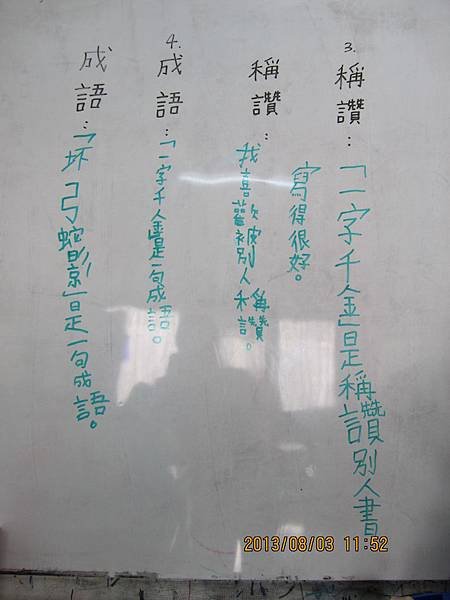 3.稱讚:「一字千金」是稱讚別人書
寫得很好。
稱讚:我喜歡被別人稱讚。
4.成語:「一字千金」是一句成語。
成語:「坏弓蛇影」是一句成語。
2013/08/03 11:52